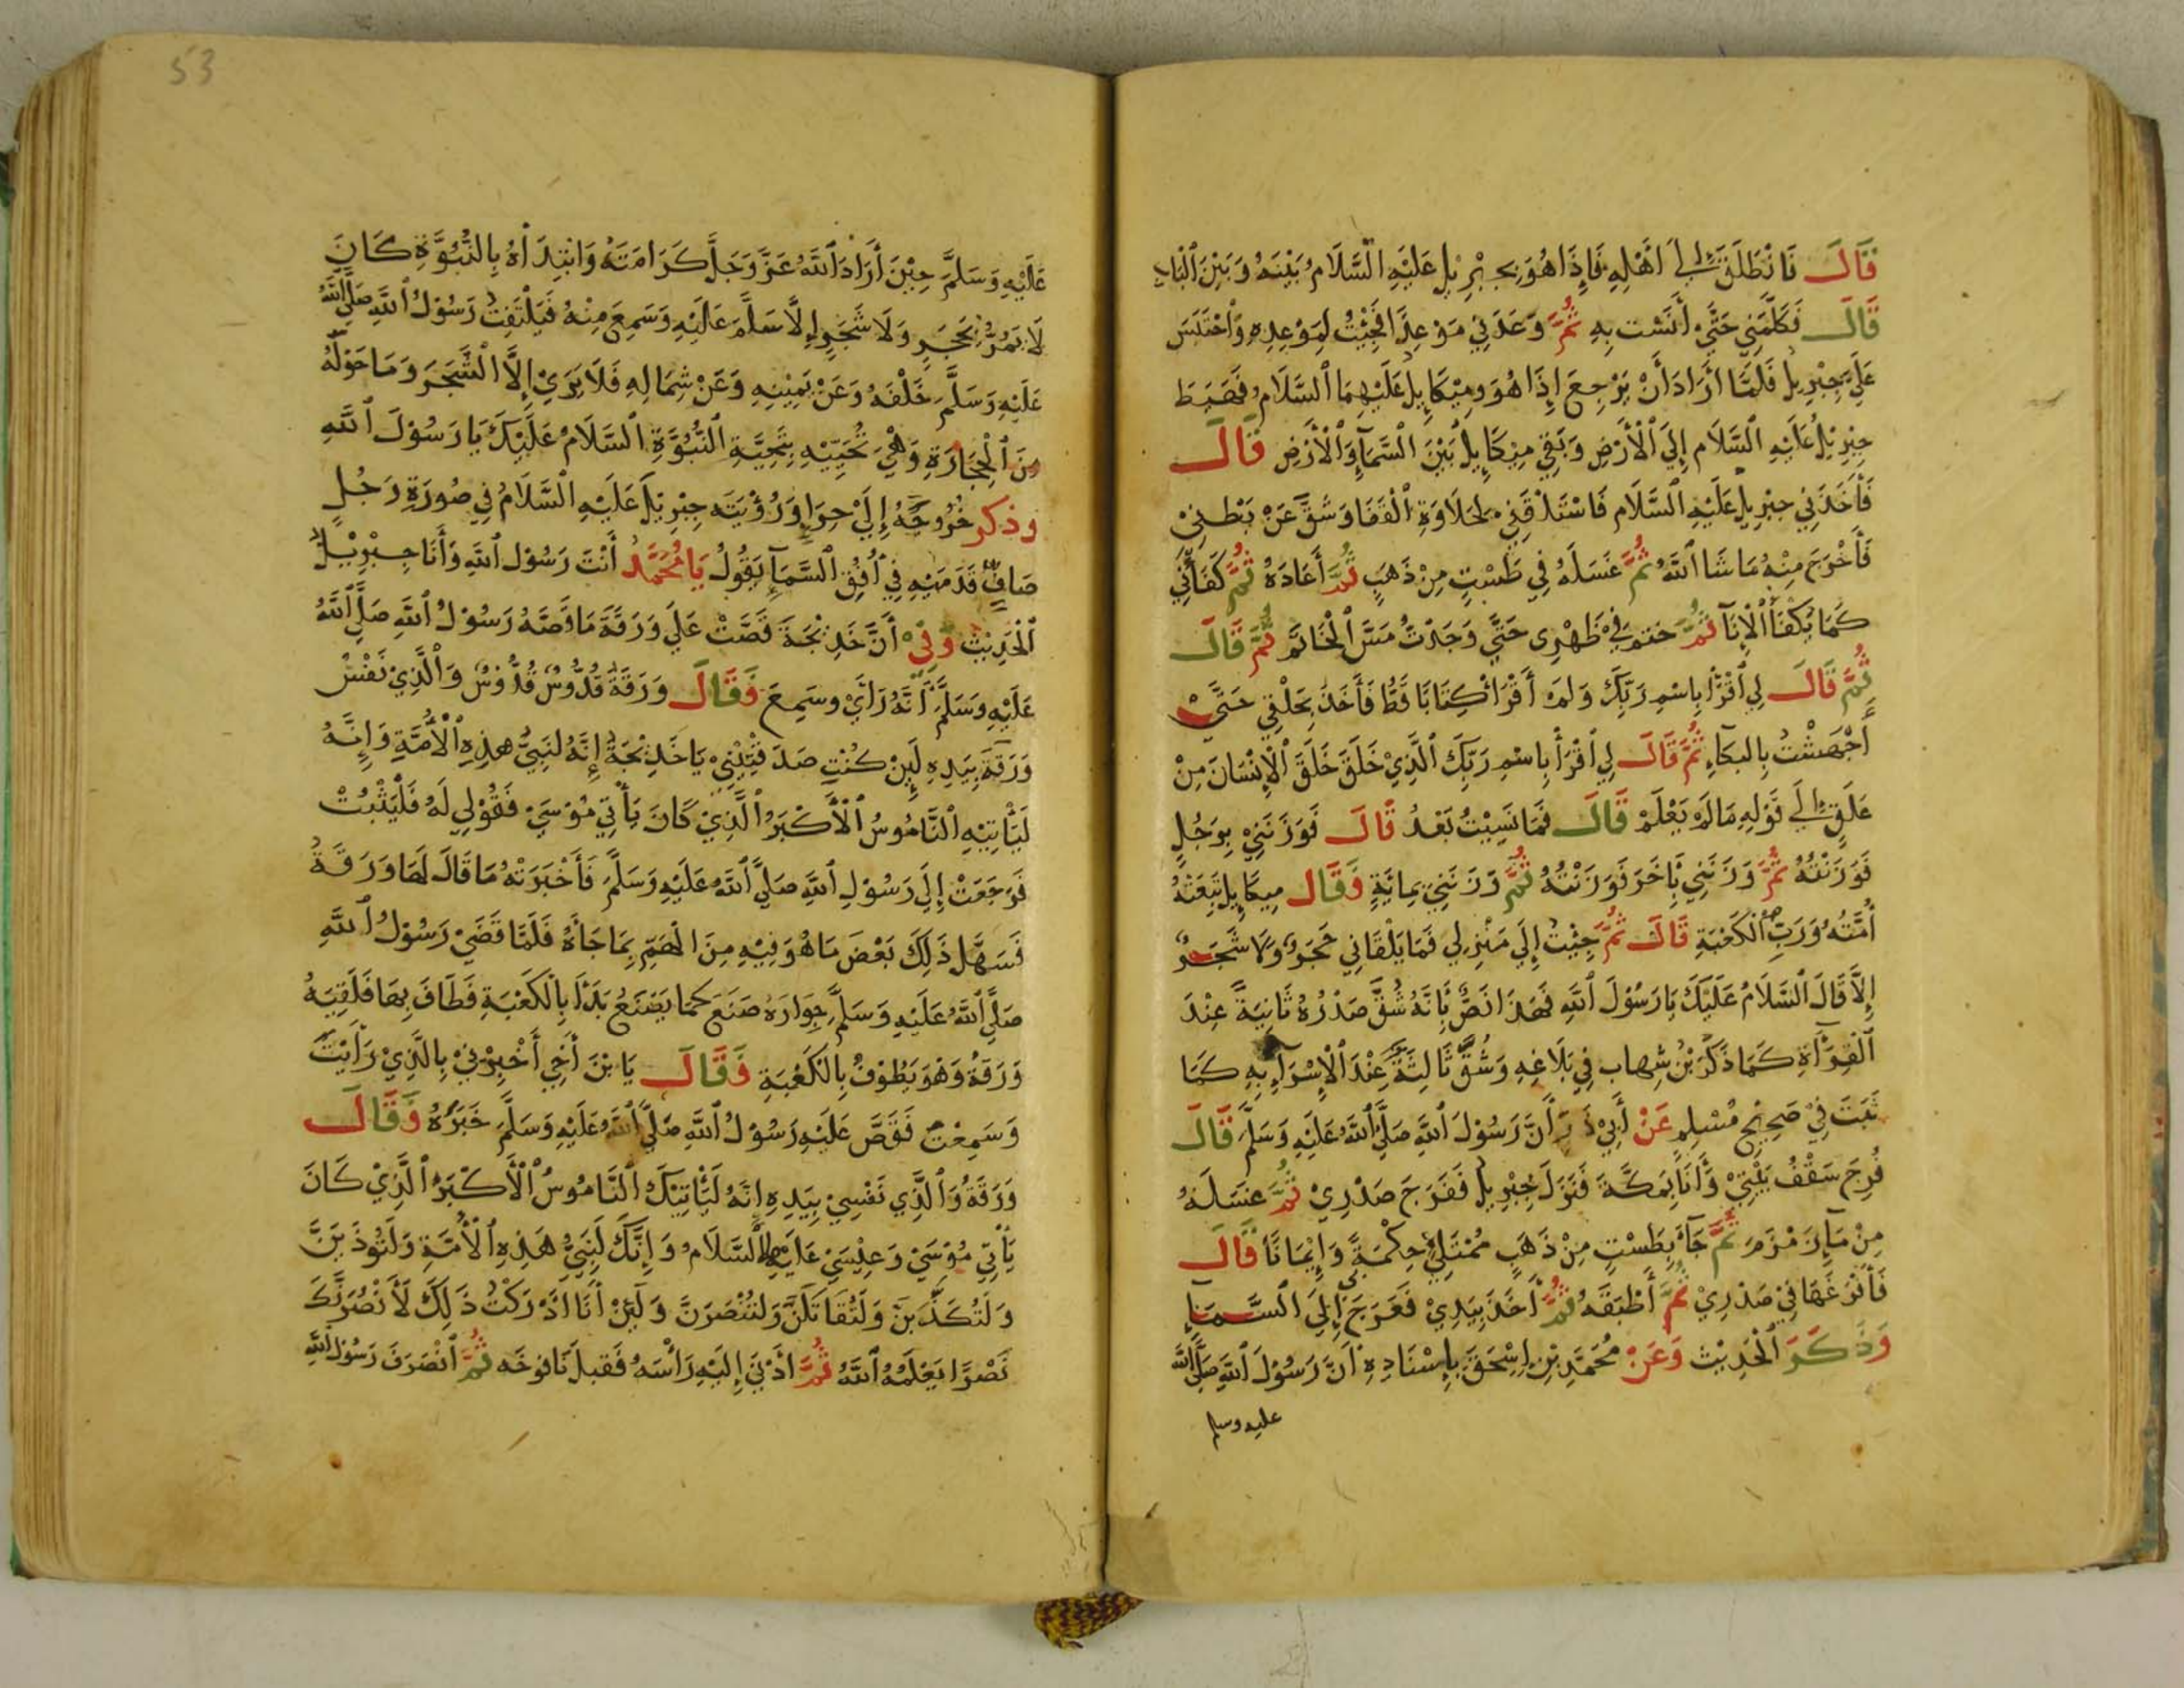 قَالَ فَانْطَلَقَ إِلَى أَهْلِهِ فَإِذَا هُوَ بِجِبْرِيلَ عَلَيْهِ السَّلَامُ بَيْنَهُ وَبَيْنَ الْبَابِ
قَالَ فَكَلَّمَنِي حَتَّى أَنَسْتُ بِهِ ثُمَّ وَعَدَنِي مَوْعِدًا فَجِئْتُ لِمَوْعِدِهِ وَاحْتَبَسَ
عَلَيَّ جِبْرِيلُ فَلَمَّا أَرَادَ أَنْ يَرْجِعَ إِذَا هُوَ وَمِيْكَايِلُ عَلَيْهِمَا السَّلَامُ فَهَبَطَ
جِبْرِيْلُ عَلَيْهِ السَّلَام إِلَى الْأَرْضِ وَبَقِيَ مِيْكَايِلُ بَيْنَ السَّمَآءِ وَالْأَرْضِ قَالَ
فَأَخَذَنِي جِبْرِيلُ عَلَيْهِ السَّلَام فَاسْتَلْقَنِي لِحَلَاوَةِ الْقَفَا وَشَقَّ عَنْ بَطْنِيْ
فَأَخْرَجَ مِنْهُ مَا شَا اللَّهُ ثُمَّ غَسَلَهُ فِي طَسْتٍ مِنْ ذَهَبٍ ثُمَّ أَعَادَهُ ثُمَّ كَفَأَنِّي
كَمَا يُكْفَأُ الْإِنَآ ثُمَّ خَتَمَ فِيْ ظَهْرِى حَتَّى وَجَدْتُ مَسَّ الْخَاتَمِ ثُمَّ قَالَ
ثُمَّ قَالَ لِي اقْرَأْ بِاسْمِ رَبِّكَ وَلَمْ أَقْرَأْ كِتَابًا قَطُّ فَأَخَذَ بِحَلْقِي حَتَّى
أَجْهَشْتُ بِالبُكَآءِ ثُمَّ قَالَ لِي اقْرَأْ بِاسْمِ رَبِّكَ الَّذِيْ خَلَقَ خَلَقَ الْإِنْسَانَ مِنْ
عَلَقٍ إِلَى قَوْلِهِ مَالَمْ يَعْلَمْ قَالَ فَمَا نَسِيْتُ بَعْدُ قَالَ فَوَزَنَنِيْ بِرَجُلٍ
فَوَزَنْتُهُ ثُمَّ وَزَنَنِي بِآخَرَ فَوَزَنْتُهُ ثُمَّ وَزَنَنِي بِمِائَةٍ فَقَالَ مِيكَايِلُ تَبِعَتْهُ
أُمَّتُهُ وَرَبِّ الْكَعْبَةِ قَالَ ثُمَّ جِئْتُ إِلَى مَنْزِلِي فَمَا يَلْقَانِي حَجَرٌ وَلَا شَجَرٌ
إِلَّا قَالَ السَّلَامُ عَلَيْكَ يَا رَسُوْلَ اللَّهِ فَهَذَا نَصٌّ بِأَنَّهُ شُقَّ صَدْرُهُ ثَانِيَةً عِنْدَ
الْقِرَآءَةِ كَمَا ذَكَرَ بْنُ شِهاب فِي بَلَاغِهِ وَشُقَّ ثَالِثَةً عِنْدَ الْإِسْرَآءِ بِهِ كَمَا
ثَبَتَ فِيْ صَحِيْحِ مُسْلِمٍ عَنْ أَبِيْ ذَرٍّ أَنَّ رَسُوْلَ اللَّهِ صَلَّى اللَّهُ عَلَيْهِ وَسَلَّمَ قَالَ
فُرِجَ سَقْفُ بَيْتِيْ وَأَنَا بِمَكَّةَ فَنَزَلَ جِبْرِيلُ فَفَرَجَ صَدْرِيْ ثُمَّ غَسَلَهُ
مِنْ مَآءِ زَمْزَمَ ثُمَّ جَآءَ بِطَسْتٍ مِنْ ذَهَبٍ مُمْتَلِئٍ حِكْمَةً وَإِيْمَانًا قَالَ
فَأَفْرَغَهَا فِيْ صَدْرِيْ ثُمَّ أَطْبَقَهُ ثُمَّ أَخَذَ بِيَدِيْ فَعَرَجَ بِي إِلَى السَّمَاءِ
وَذَكَرَ الْحَدِيْث وَعَنْ مُحَمَّدِ بْنِ اِسْحَقَ بِإِسْنَادِهِ أَنَّ رَسُوْلَ اللَّهِ صَلَّى اللَّهُ
عليه وسلم
53
عَلَيْهِ وَسَلَّمَ حِيْنَ أَرَادَ اللَّهُ عَزَّ وَجَلَّ كَرَامَتَهُ وَابْتِدَاهُ بِالنُّبُوَّةِ كَانَ
لَا يَمُرُّ بِحَجَرٍ وَلَا شَجَرٍ إِلَّا سَلَّمَ عَلَيْهِ وَسَمِعَ مِنْهُ فَيَلْتَفِتُ رَسُوْلُ اللَّهِ صَلَّى اللَّهُ
عَلَيْهِ وَسَلَّمَ خَلْفَهُ وَعَنْ يَمِيْنِهِ وَعَنْ شِمَالِهِ فَلَا يَرَيْ إِلَّا الشَّجَرَ وَمَا حَوْلَهُ
مِنَ الْحِجَارَةِ وَهْيَ تُحَيِّيْهِ بِتَحِيَّةِ النُّبُوَّةِ السَّلَامُ عَلَيْكَ يَا رَسُوْلَ اللَّهِ
وذكر خُرُوجَهُ إِلَى حِرَا وَرُؤْيَتَه جِبْرِيْلَ عَلَيْهِ السَّلَامُ فِي صُورَةِ رَجُلٍ
صَافٍّ قَدَمَيْهِ فِي اُفُقِ السَّمَآءِ يَقُولُ يَا مُحَمَّدُ أَنْتَ رَسُوْلُ اللَّهِ وَأَنَا جِبْرِيْلُ
الْحَدِيْثَ وَفِيْ أَنَّ خَدِيْجَةَ قَصَّتْ عَلَى وَرَقَةَ مَا قَصَّهُ رَسُوْلُ اللَّهِ صَلَّى اللَّهُ
عَلَيْهِ وَسَلَّمَ أَنَّهُ رَاَيْ وسَمِعَ فَقَالَ وَرَقَةُ قُدُّوْسٌ قُدُّوْسٌ وَالَّذِيْ نَفْسُ
وَرَقَةَ بِيَدِهِ لَئِنْ كُنْتِ صَدَقْتِيْنِيْ يَا خَدِيْجَةُ إِنَّهُ لَنَبِيُّ هذِهِ الْأُمَّةِ وَإِنَّهُ
لَيَأْتِيْهِ النَّامُوْسُ الْأَكْبَرُ الَّذِيْ كَانَ يَأْتِي مُوْسَيْ فَقُوْلِي لَهُ فَلْيَثْبُتْ
فَرَجَعَتْ إِلَى رَسُوْلِ اللَّهِ صَلَّى اللَّهُ عَلَيْهِ وَسَلَّمَ فَأَخْبَرَتْهُ مَا قَالَ لَهَا وَرَقَةُ
فَسَهَّلَ ذَلِكَ بَعْضَ مَا هُوَ فِيْهِ مِنَ الْهَمِّ بِمَا جَاَهُ فَلَمَّا قَضَيْ رَسُوْلُ اللَّهِ
صَلَّى اللَّهُ عَلَيْهِ وَسَلَّمَ جِوَارَهُ صَنَعَ كَمَا يَصْنَعُ بَدَأَ بِالْكَعْبَةِ فَطَافَ بِهَا فَلَقِيَهُ
وَرَقَةُ وَهْوَ يَطُوْفُ بِالْكَعْبَةِ فَقَالَ يَا بْنَ أَخِي أَخْبِرْنِيْ بِالَّذِيْ رَأَيْتَ
وَسَمِعْتَ فَقَصَّ عَلَيْهِ رَسُوْلُ اللَّهِ صَلَّى اللَّهُ عَلَيْهِ وَسَلَّمَ خَبَرَهُ فَقَالَ
وَرَقَةُ وَالَّذِي نَفْسِيْ بِيَدِهِ اِنَّهُ لَيَأْتِيْكَ النَّامُوْسُ الْأَكْبَرُ الَّذِيْ كَانَ
يَأْتِي مُوْسَيْ وَعِيْسَيْ عَلَيْهِمَا السَّلَامُ وَإِنَّكَ لَنَبِيُّ هَذِهِ الْأُمَّةِ وَلَتُوذَيَنَّ
وَلَتُكَذَّبَنَّ وَلَتُقَاتَلَنَّ وَلَتُنْصَرَنَّ وَلَئِنْ أَنَا اَدْرَكْتُ ذَلِكَ لَأَنْصُرَنَّكَ
نَصْرًا يَعْلَمُهُ اللَّهُ ثُمَّ اَدْنَيَ إِلَيْهِ رَأْسَهُ فَقَبلَ يَافوخَه ثُمَّ انْصَرَفَ رَسُوْلُ اللَّهِ